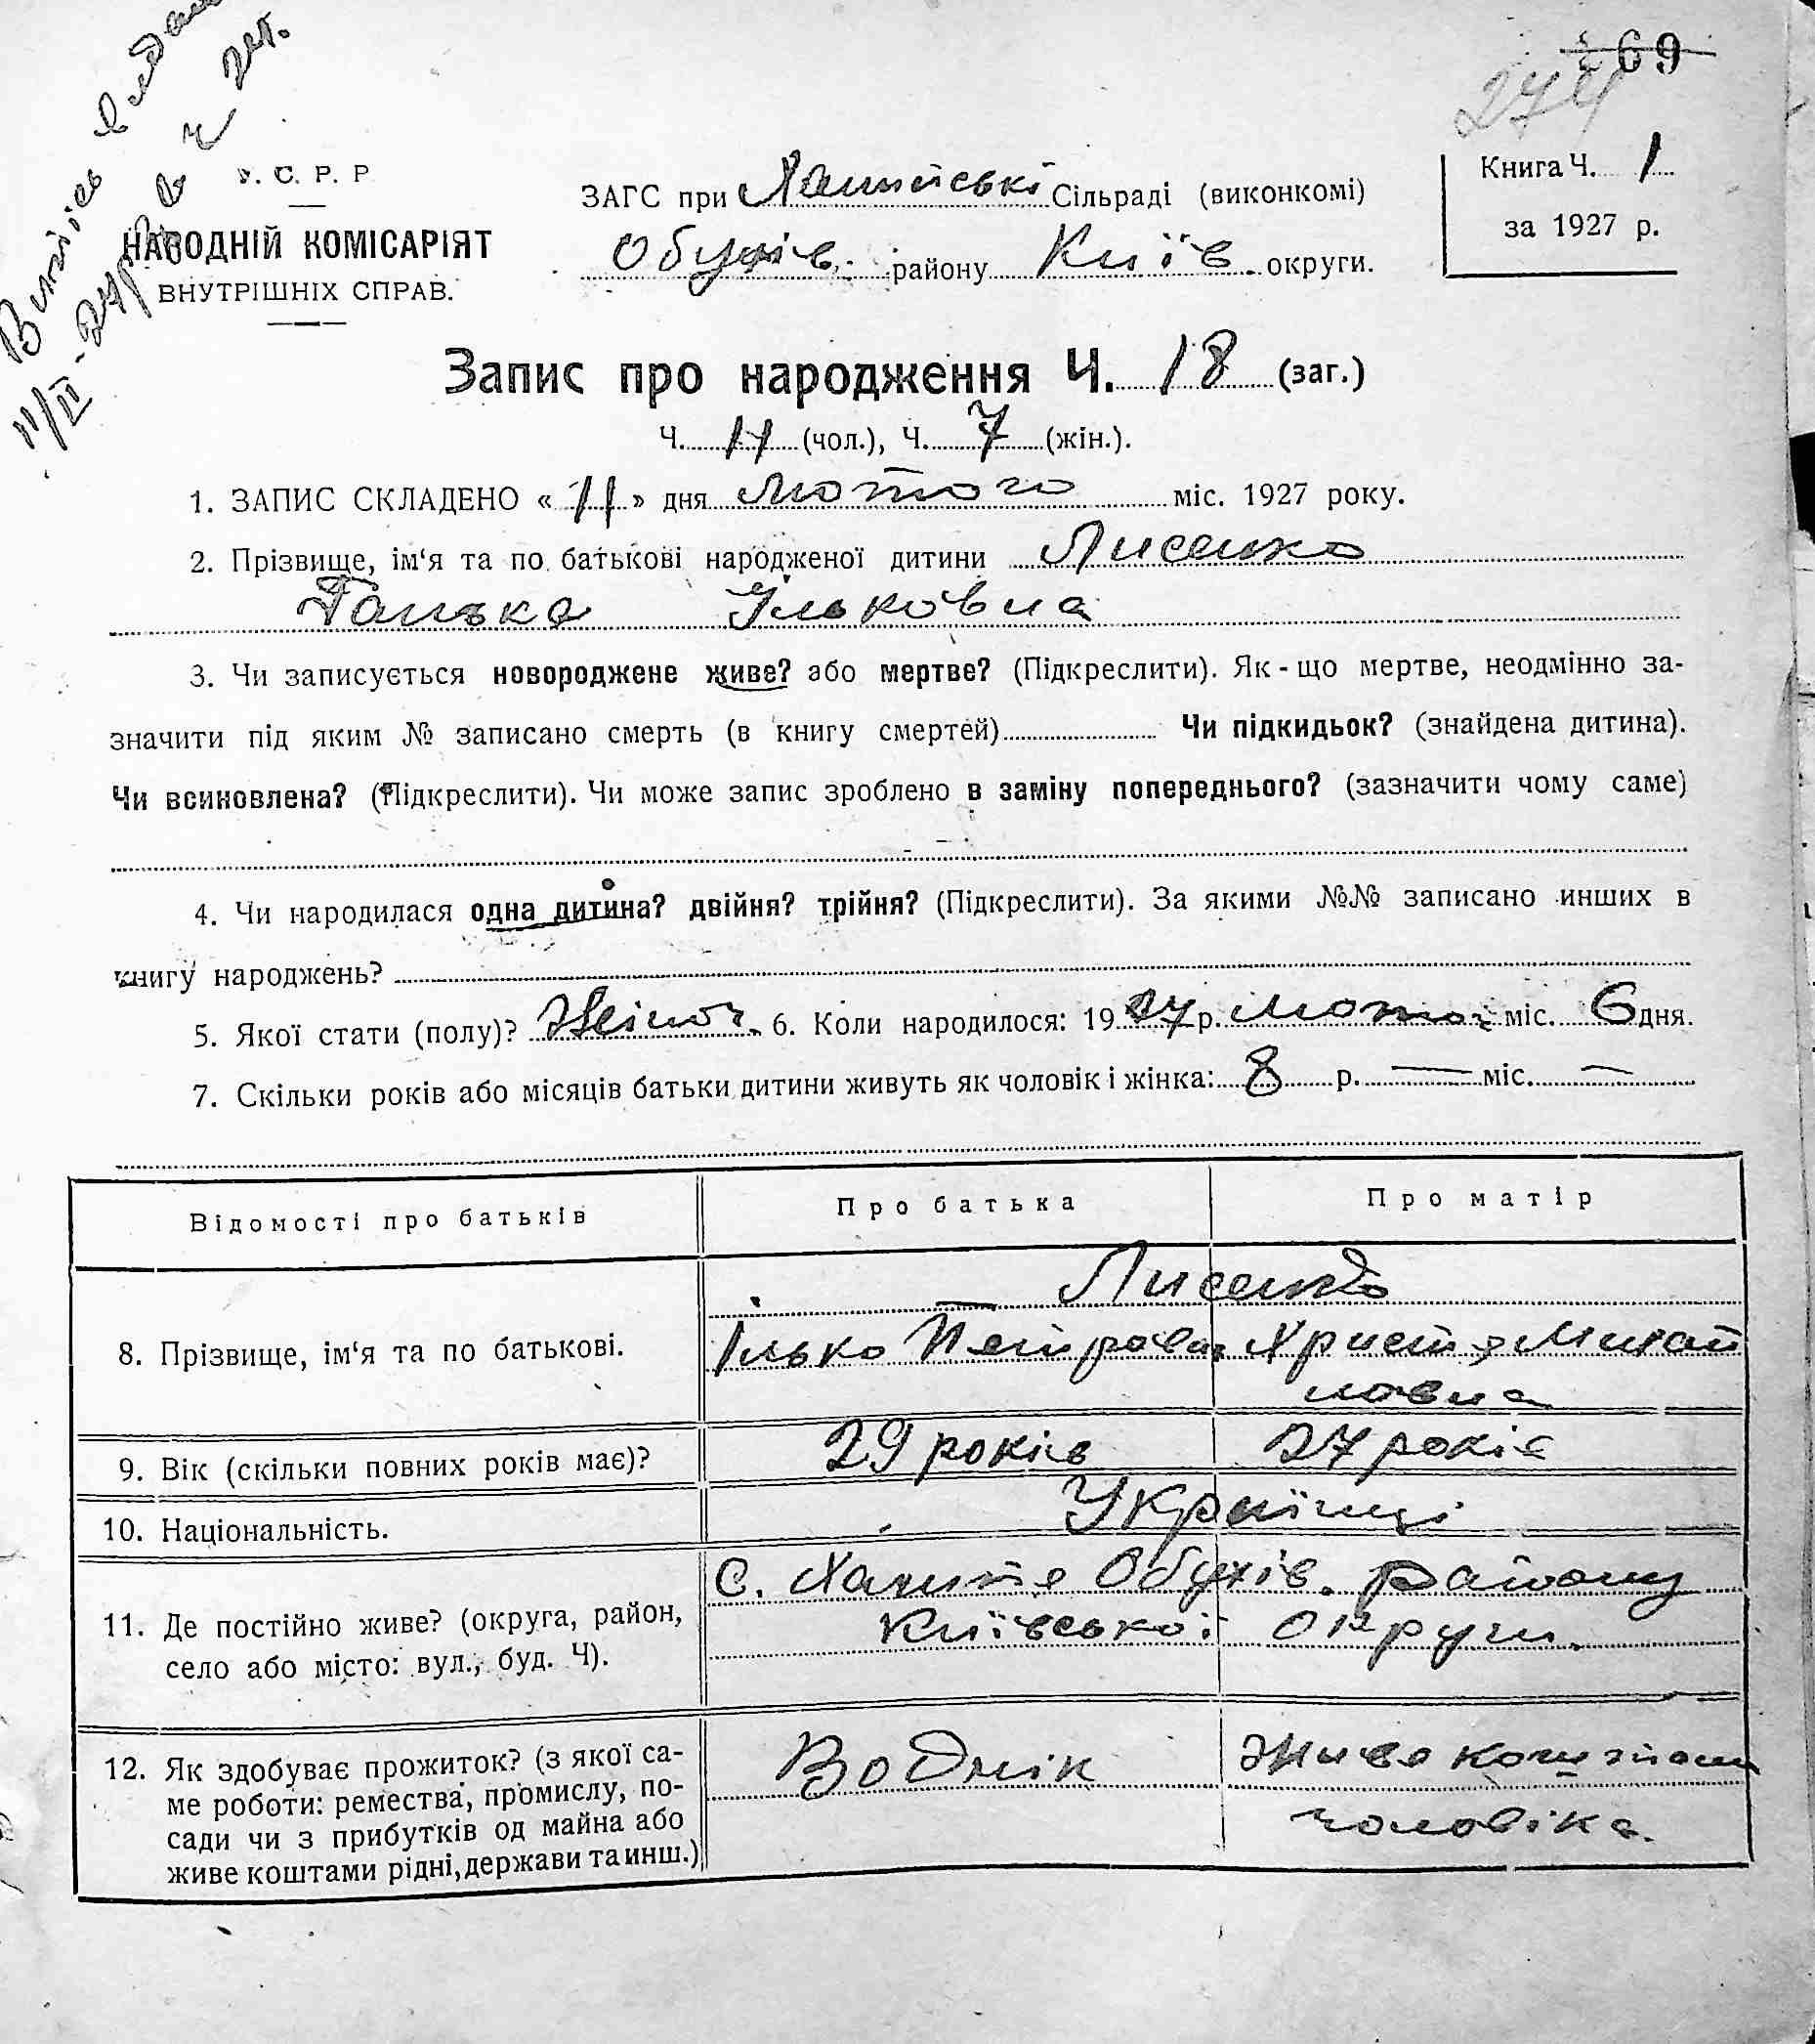 69
274
Витпісь видана
11/II - 27
У. С. Р. Р
НАРОДНІЙ КОМІСАРІЯТ
ВНУТРІШНІХ СПРАВ.
ЗАГС при Сільраді (виконкомі)
Обухів. району Київ. округи.
Книга Ч. 1
за 1927 р.
Запис про народження Ч. 18 (заг.)
Ч. 11 (чол.), Ч. 7 (жін.).
1. ЗАПИС СКЛАДЕНО « 11 » дня лютого міс. 1927 року.
2. Прізвище, ім‘я та по батькові народженої дитини Лисенко
Ганька Ільковна
3. Чи записується новороджене живе? або мертве? (Підкреслити). Як - що мертве, неодмінно за-
значити під яким № записано смерть (в книгу смертей) Чи підкидьок? (знайдена дитина).
Чи всиновлена? (Підкреслити). Чи може запис зроблено в заміну попереднього? (зазначити чому саме)
4. Чи народилася одна дитина? двійня? трійня? (Підкреслити). За якими №№ записано инших в
книгу народжень?
5. Якої стати (полу)? Жіноч. 6. Коли народилося: 1927 р. лютог міс. 6 дня.
7. Скільки років або місяців батьки дитини живуть як чоловік і жінка: 8 р. — міс. —
Відомості про батьків Про батька Про матір
Лисенко
8. Прізвище, ім‘я та по батькові. Ілько Петрович Христя Михай
ловна
9. Вік (скільки повних років має)? 29 років 27 років
10. Національність. Українці
С. Халипя Обухів. району
11. Де постійно живе? (округа, район, Київської округи.
село або місто: вул., буд. Ч).
12. Як здобуває прожиток? (з якої са- Воднік Живе коштом
ме роботи: ремества, промислу, по- чоловіка.
сади чи з прибутків од майна або
живе коштами рідні, держави та инш.)